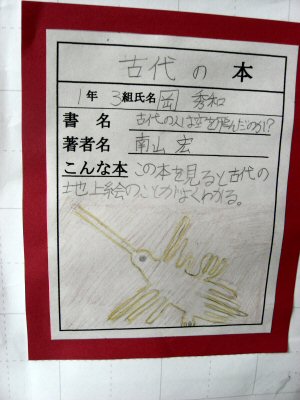 古代の本
1年3組氏名 岡 秀和
書名 古代の人は空を飛んだのか!?
著者名 南山 宏
こんな本 この本を見ると古代の
土地上絵のことがよくわかる。